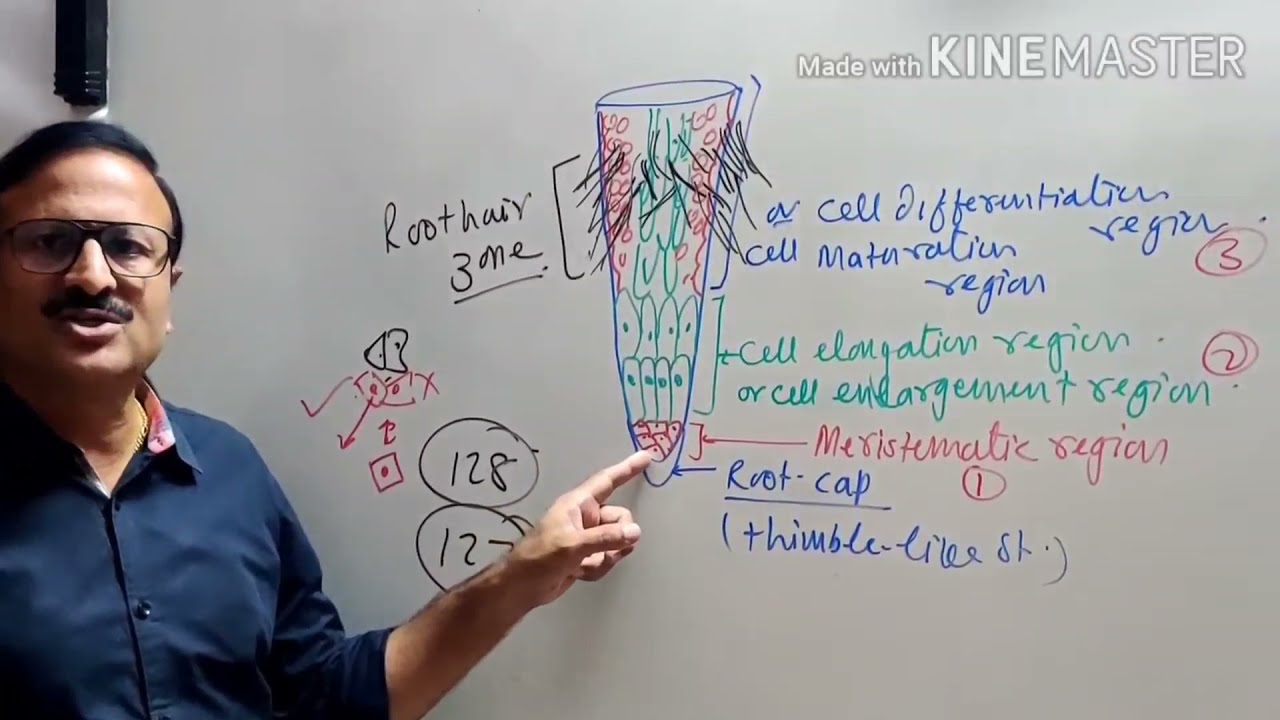 Made with KINEMASTER
Root hair
zone.
or cell differentiation
region.
cell maturation
region
3
cell elongation region.
or cell enlargement region.
2
Meristematic region
1
Root-cap
(thimble-like st.)
128